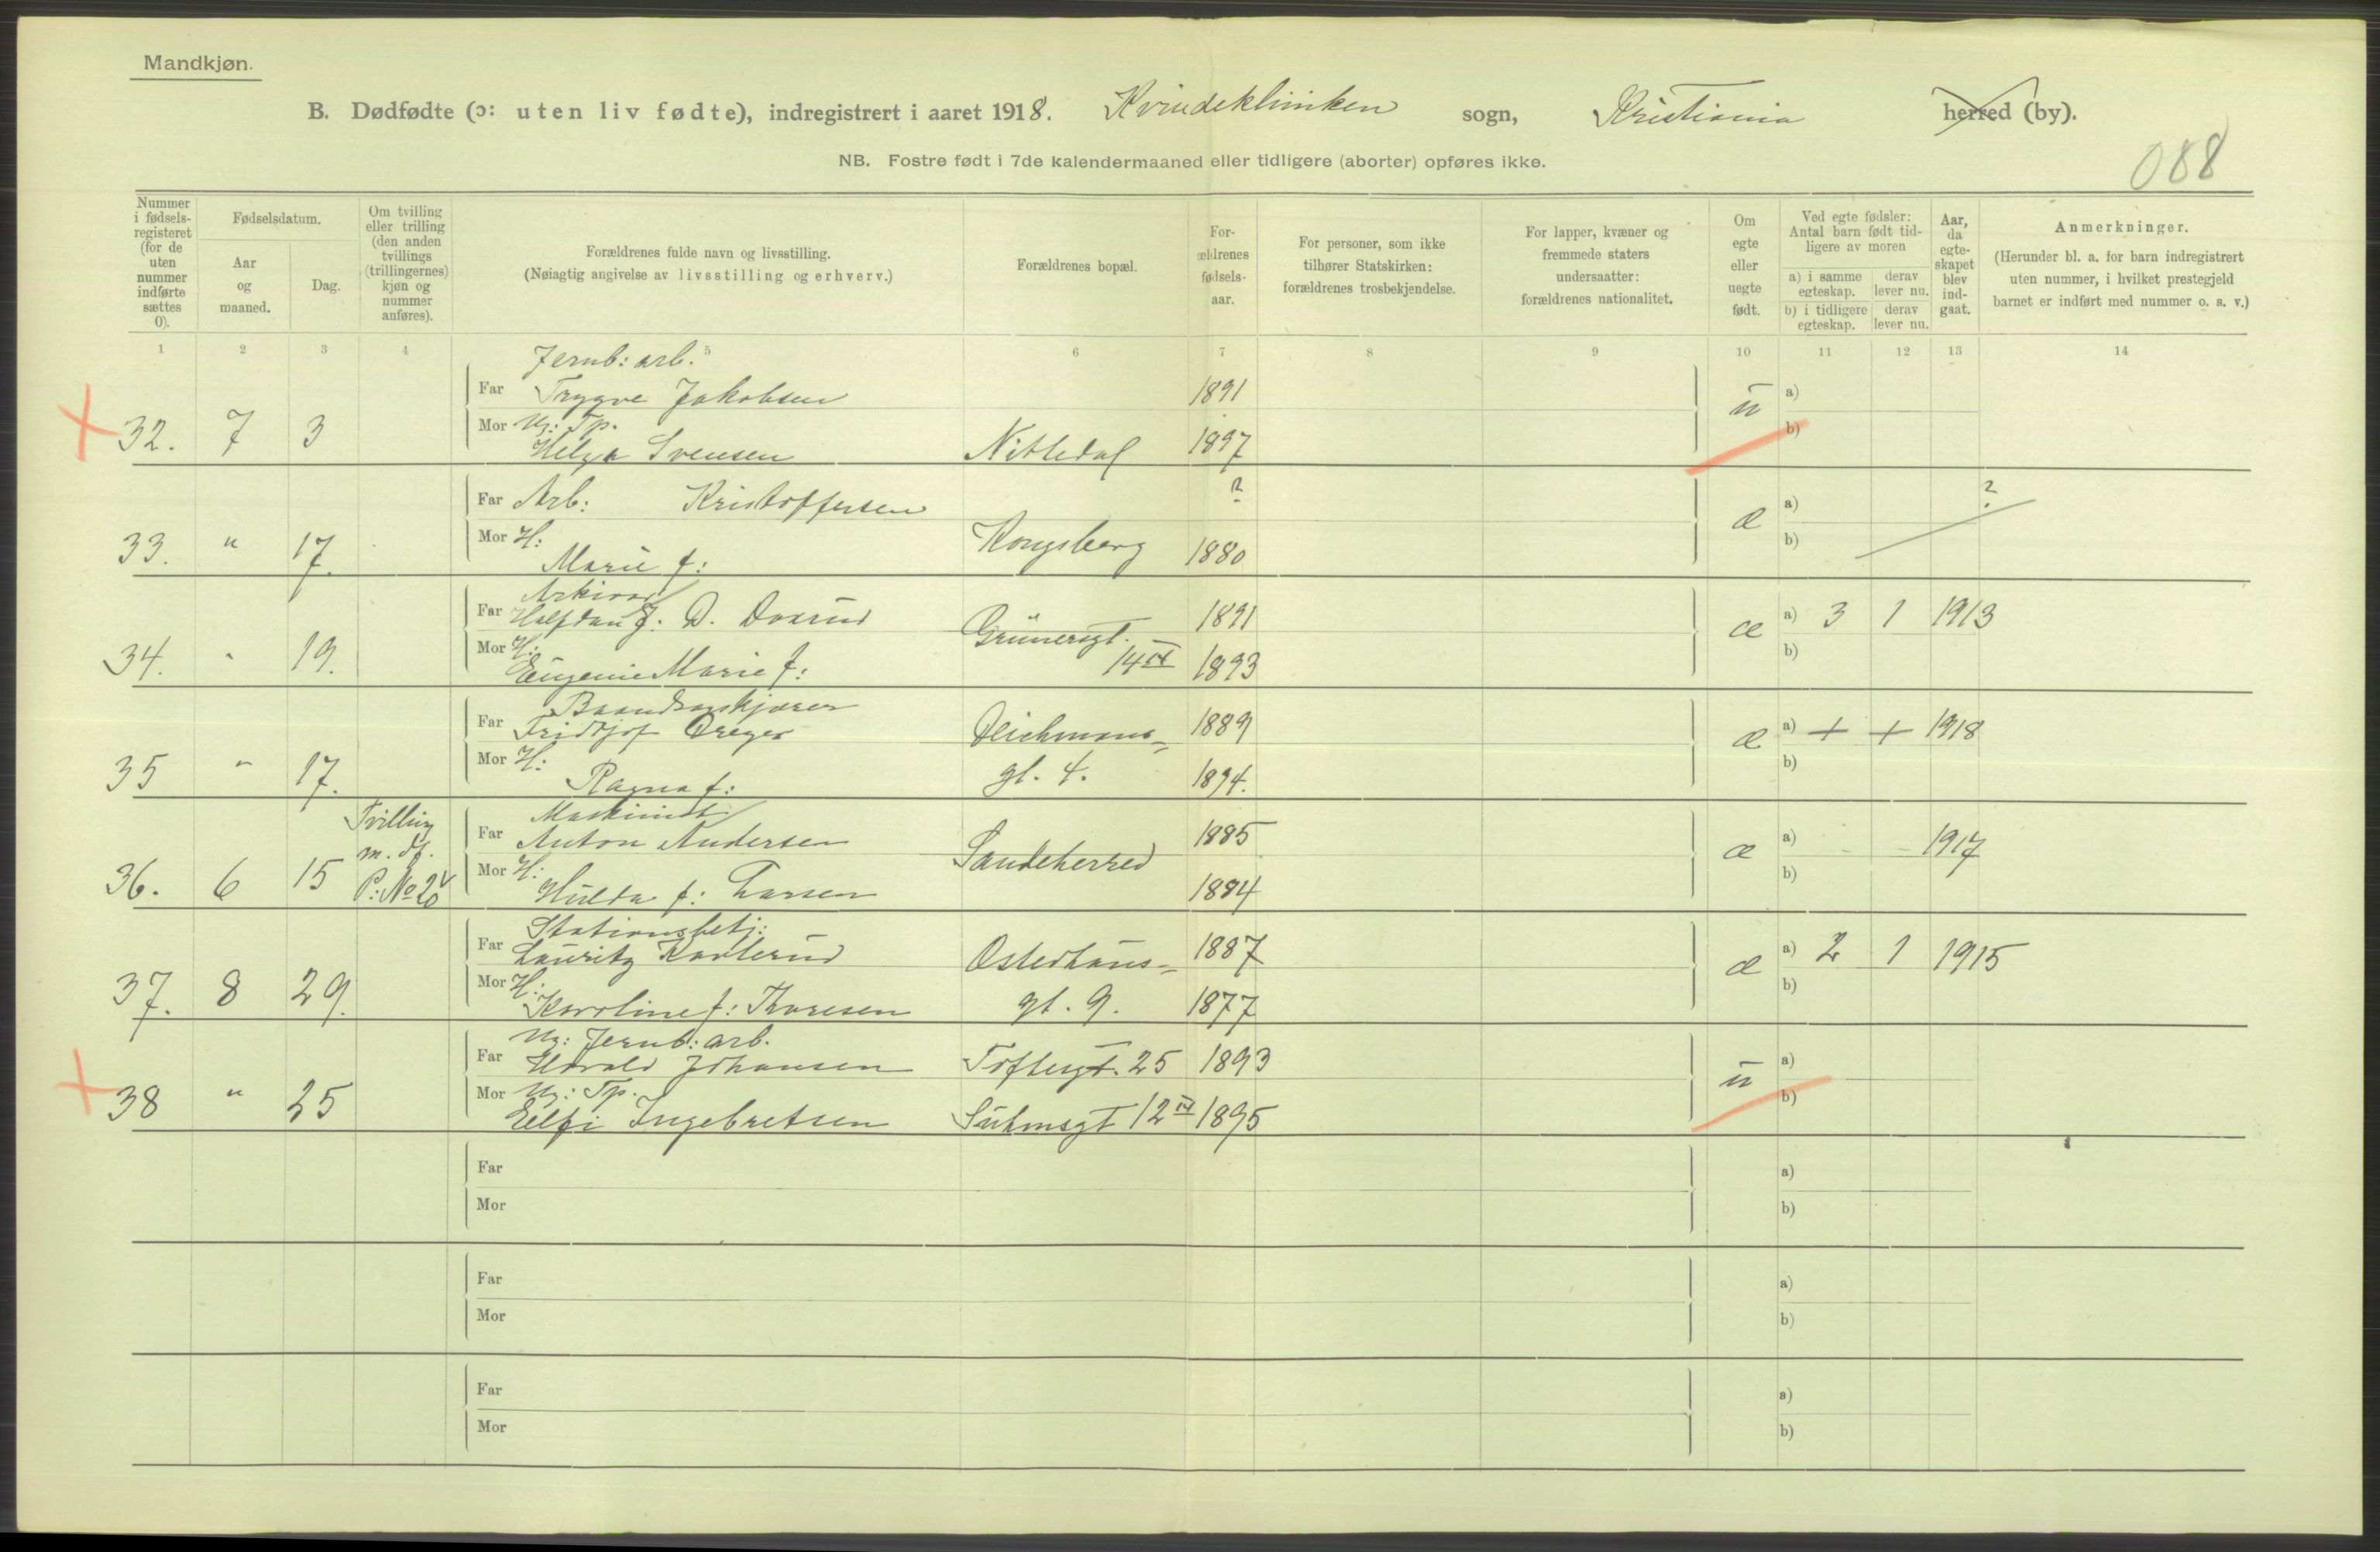 Mandkjøn.
B. Dødfødte (ɔ: uten liv fødte), indregistrert i aaret 1918. Kvindeklinikken sogn, Kristiania herred (by).
NB. Fostre født i 7de kalendermaaned eller tidligere (aborter) opføres ikke.
088
Nummer i fødsels-registeret (for de uten nummer indførte sættes 0).
Fødselsdatum.
Aar og maaned.
Dag.
Om tvilling eller trilling (den anden tvillings (trillingernes) kjøn og nummer anføres).
Forældrenes fulde navn og livsstilling.
(Nøiagtig angivelse av livsstilling og erhverv.)
Forældrenes bopæl.
For-ældrenes fødsels-aar.
For personer, som ikke tilhører Statskirken: forældrenes trosbekjendelse.
For lapper, kvæner og fremmede staters undersaatter: forældrenes nationalitet.
Om egte eller uegte født.
Ved egte fødsler: Antal barn født tid-ligere av moren
a) i samme egteskap.
derav lever nu.
b) i tidligere egteskap.
derav lever nu.
Aar, da egte-skapet blev ind-gaat.
Anmerkninger.
(Herunder bl. a. for barn indregistrert uten nummer, i hvilket prestegjeld barnet er indført med nummer o. s. v.)
1 2 3 4 5 6 7 8 9 10 11 12 13 14
Jernb: arb.
Far Trygve Jakobsen 1891
ü a)
32. 7 3
Mor Ug: Tp.
Helga Svensen Nittedal 1897
b)
Far Arb: Kristoffersen ?
æ a) ?
33. " 17.
Mor H:
Marie f: Kongsberg 1880
b)
Arkivar
Far Halfdan J. D. 1891
æ a) 3 1 1913
34. " 19.
Mor H:
Eugenie Marie f: Grünersgt. 14 IV 1893
b)
Far Fridtjof Dreyer Deichmans= 1889
æ a) + + 1918
35 " 17.
Mor H:
Ragna f: gt. 4. 1894.
b)
Tvilling m. df. P: No 20
Maskinist
Far Anton Andersen Sandeherred 1885
æ a) - - 1917
36. 6 15
Mor H:
Hulda f: Larsen 1884
b)
Stationsbetj:
Far Lauritz Karlerud Osterhaus= 1887
æ a) 2 1 1915
37. 8 29.
Mor H:
Karoline f: Thoresen gt. 9. 1877
b)
Ug: Jernb: arb.
Far Harald Johansen Toftesgt. 25 1893
ü a)
38 " 25
Mor Ug: Tp.
Elfi Ingebretsen Suhmsgt 12 IV 1895
b)
Far a)
Mor b)
Far a)
Mor b)
Far a)
Mor b)